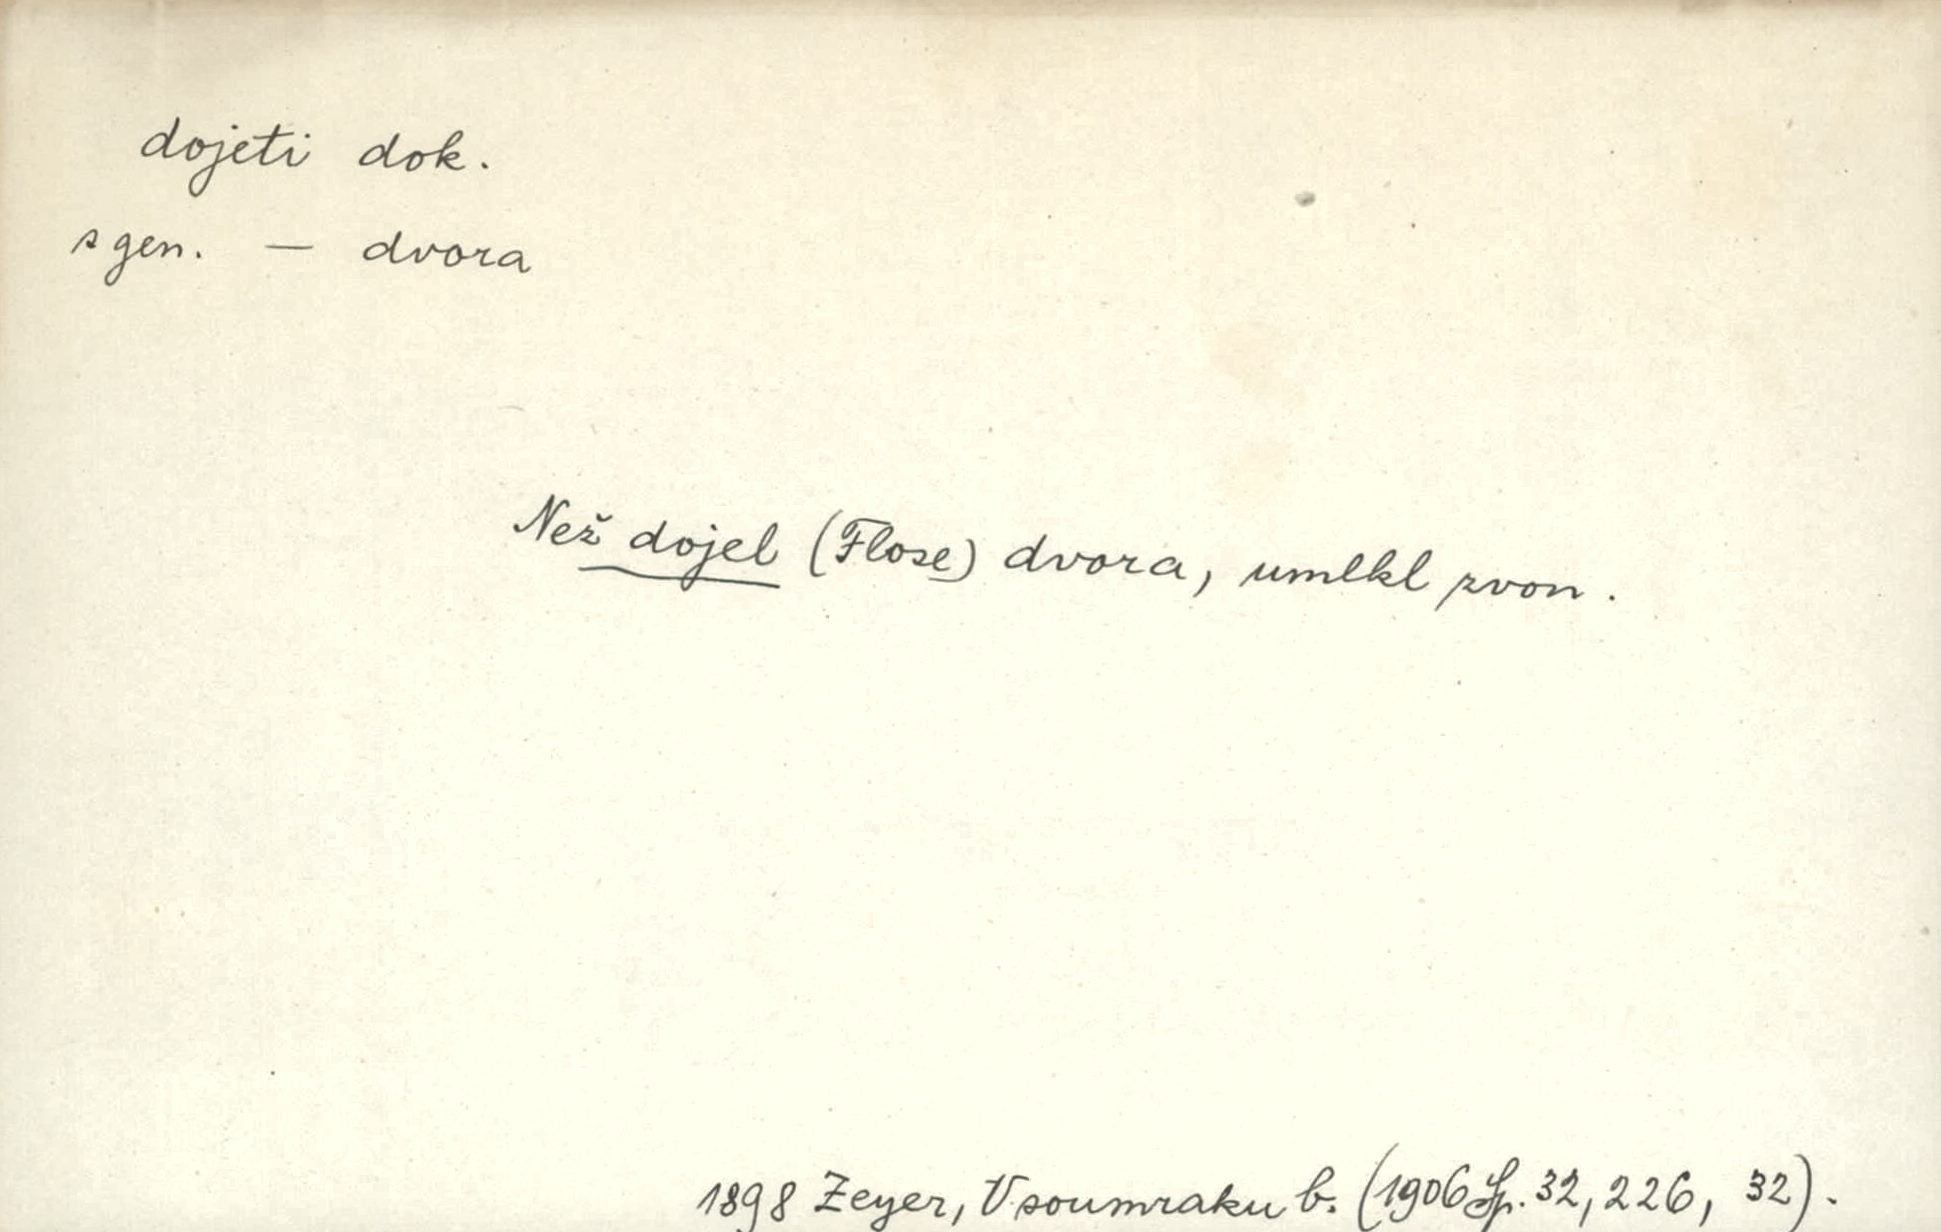 dojeti dok.
s gen. — dvora
Než dojel (Flose) dvora, umlkl zvon.
1898 Zeyer, V soumraku b. (1906 Sp. 32, 226, 32).